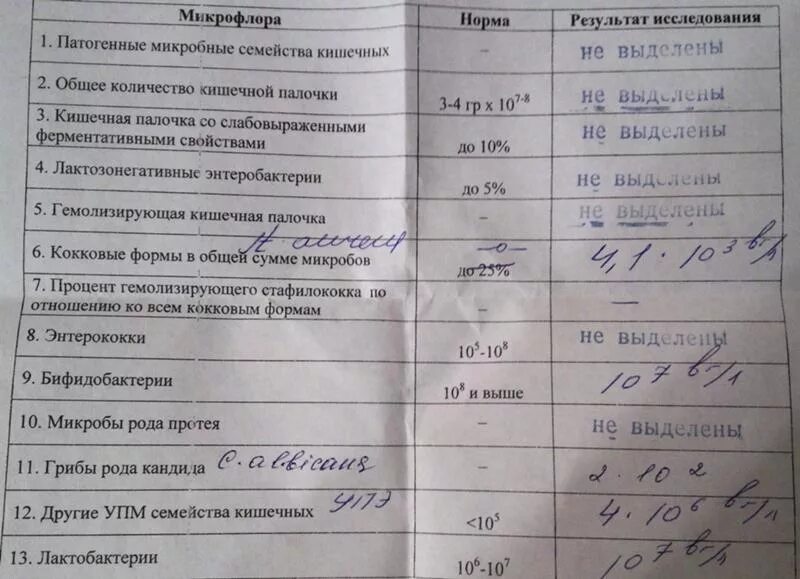 Микрофлора Норма Результат исследования
1. Патогенные микробные семейства кишечных – не выделены
2. Общее количество кишечной палочки 3-4 гр х 10⁷⁻⁸ не выделены
3. Кишечная палочка со слабовыраженными
ферментативными свойствами до 10% не выделены
4. Лактозонегативные энтеробактерии до 5% не выделены
5. Гемолизирующая кишечная палочка – не выделены
6. Кокковые формы в общей сумме микробов –0– до 25% 4,1 · 10³ в г/л
7. Процент гемолизирующего стафилококка по
отношению ко всем кокковым формам – —
8. Энтерококки 10⁵-10⁸ не выделены
9. Бифидобактерии 10⁸ и выше 10⁷ в г/л
10. Микробы рода протея – не выделены
11. Грибы рода кандида C. albicans – 2 · 10²
12. Другие УПМ семейства кишечных <10⁵ 4 · 10⁶ в г/л
13. Лактобактерии 10⁶-10⁷ 10⁷ в г/л